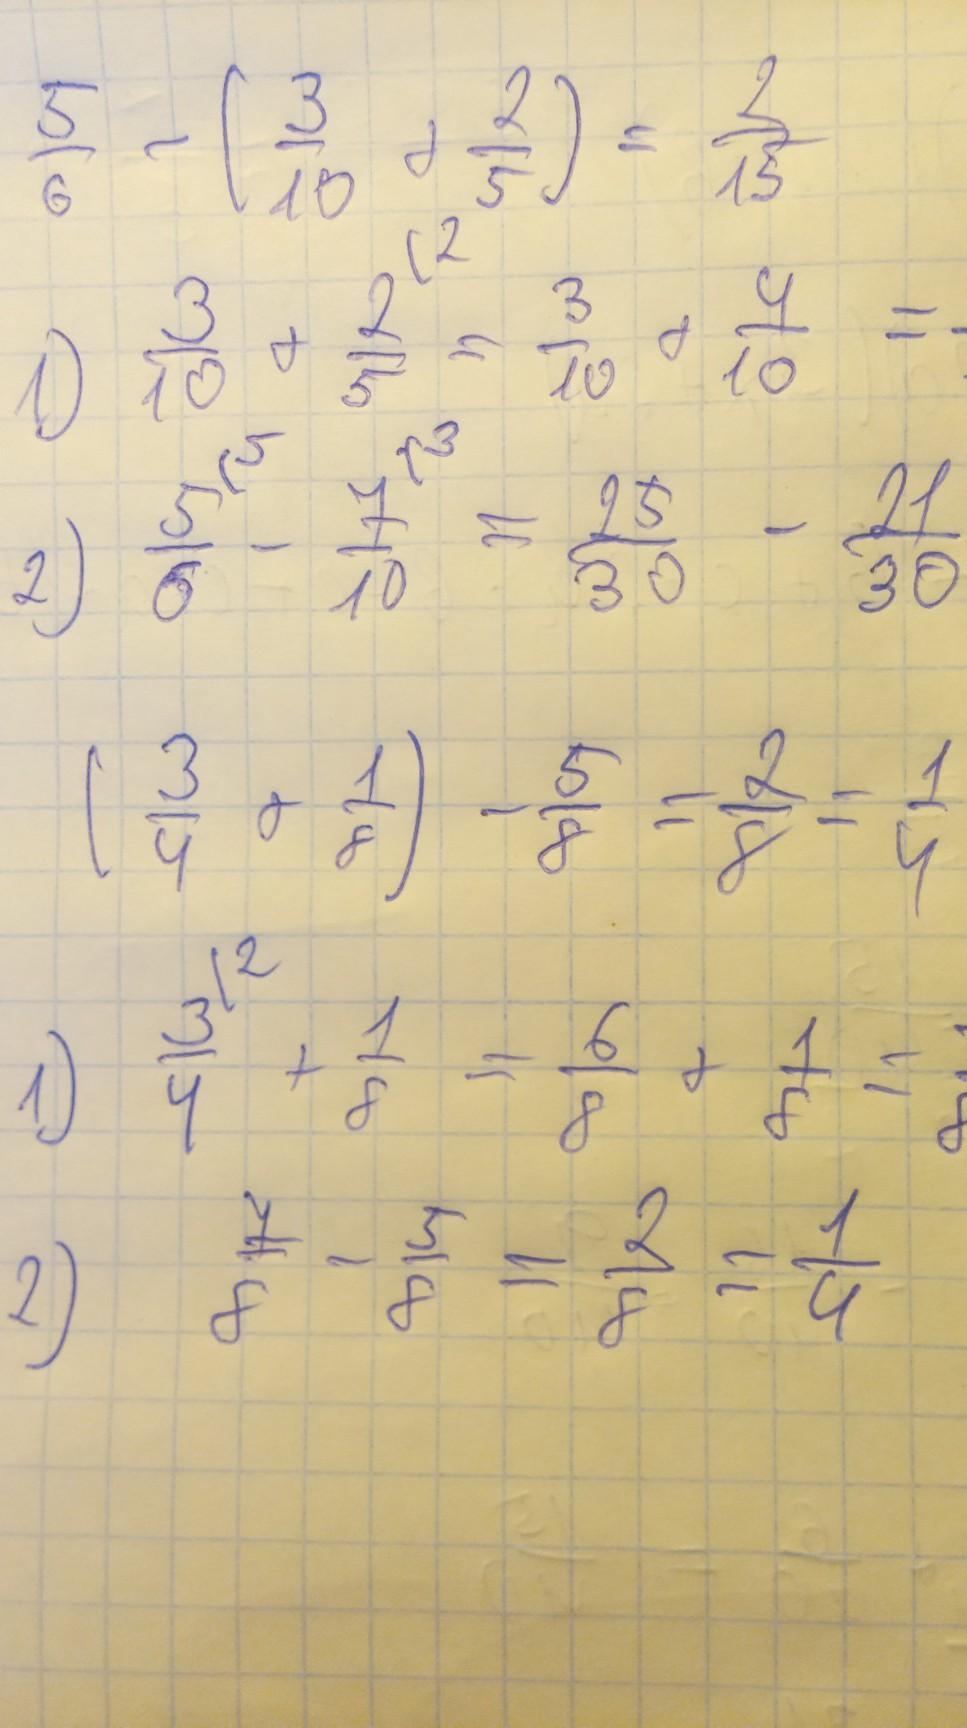 5/6 - (3/10 + 2/5) = 2/15
1) 3/10 + 2/5 (2 = 3/10 + 4/10 =
2) 5/6 (5 - 7/10 (3 = 25/30 - 21/30
(3/4 + 1/8) - 5/8 = 2/8 = 1/4
1) 3/4 (2 + 1/8 = 6/8 + 1/8 =
2) 7/8 - 5/8 = 2/8 = 1/4